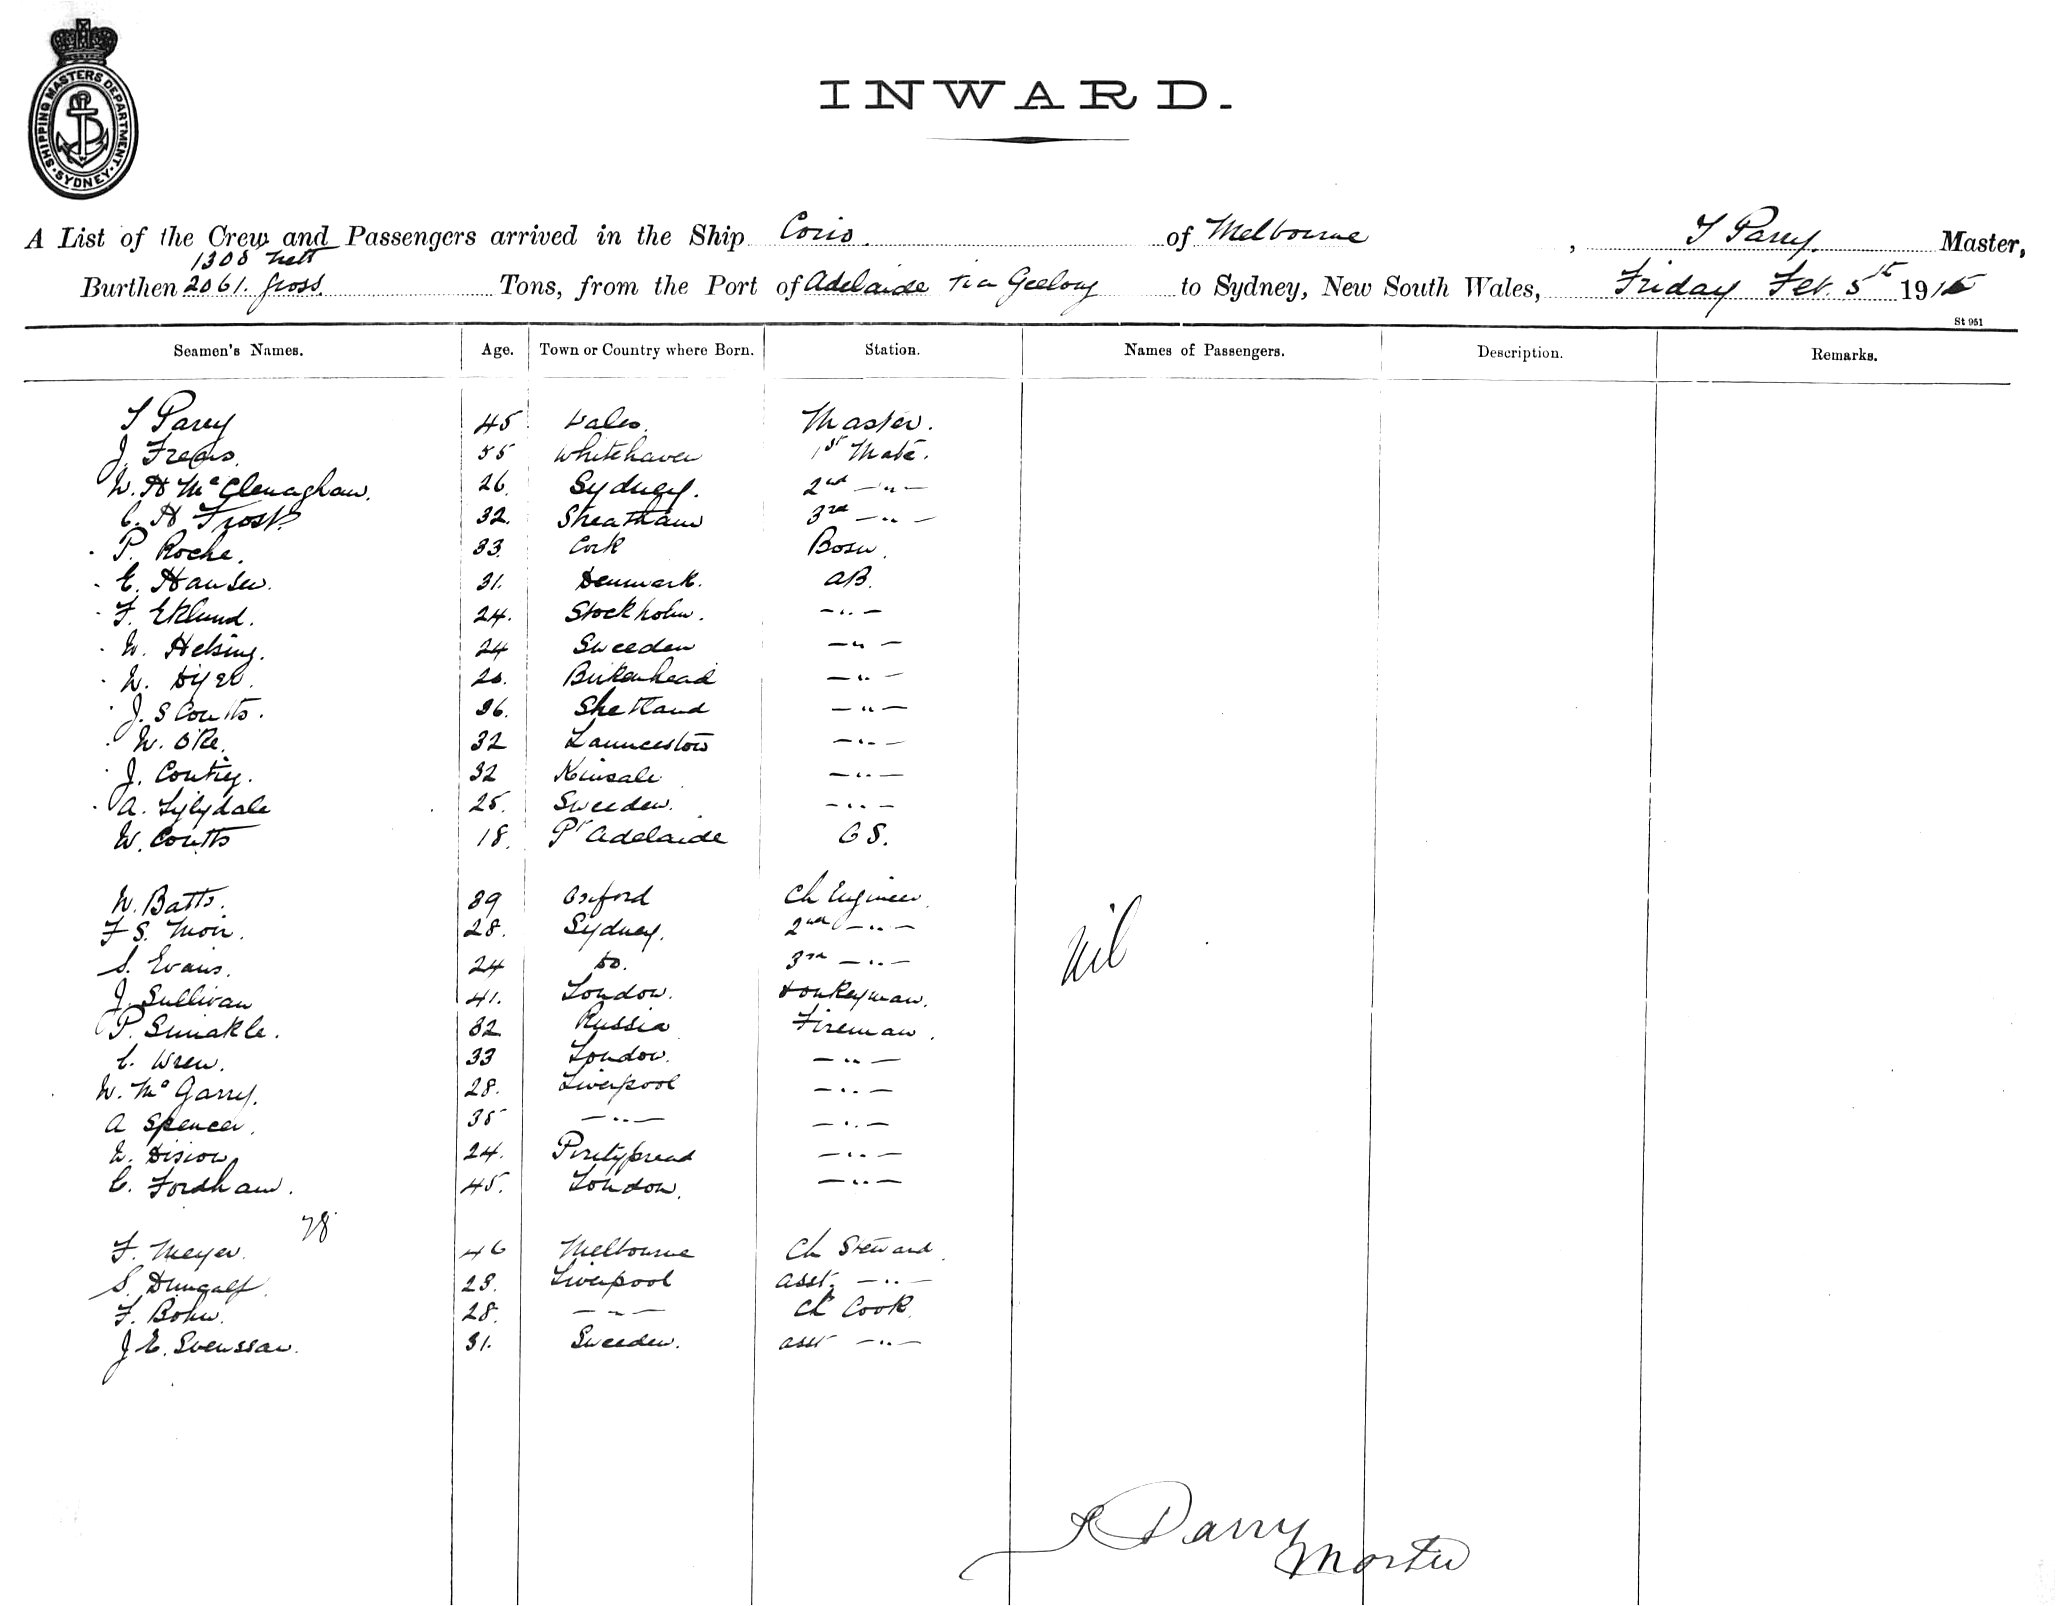 SHIPPING MASTERS DEPARTMENT
SYDNEY
INWARD.
A List of the Crew and Passengers arrived in the Ship Corio. of Melbourne, T Parry. Master,
1308 nett
Burthen 2061. gross. Tons, from the Port of Adelaide via Geelong to Sydney, New South Wales, Friday Feb. 5th 1915
St 951
Seamen's Names. Age. Town or Country where Born. Station. Names of Passengers. Description. Remarks.
T Parry 45 Wales. Master.
J. 55 Whitehaven 1st Mate.
W. H McClenaghan. 26. Sydney. 2nd —"—
C. H Frost. 32. 3rd —"—
P. Roche. 33. Cork Bosn.
E. Hansen. 31. Denmark. AB.
F. Eklund. 24. Stockholm. —"—
W. Helsing. 24 Sweeden —"—
W. Dyer. 20. Birkenhead —"—
J. S Coutts. 36. Shetland —"—
W. Oke. 32 Launceston —"—
J. 32 Kinsale —"—
A. Lylydale 25. Sweeden. —"—
W. Coutts 18. Pt Adelaide OS.
W. Batts. 39 Oxford Ch Engineer.
F S. Moir. 28. Sydney. 2nd —"—
S. Evans. 24 Do. 3rd —"—
nil
J. Sullivan 41. London. Donkeyman.
P. 32 Russia Fireman.
C. Wren. 33 London. —"—
W. McGarry. 28. Liverpool —"—
A Spencer. 35 —"— —"—
W. 24. Pontypread —"—
C. Fordham. 45. London. —"—
28
F. Meyer. 46 Melbourne Ch Steward.
S. Dungalf. 23. Liverpool asst. —"—
F. Bohn. 28. —"— Ch Cook.
J E. Svenssan. 31. Sweeden. asst —"—
T Parry
Master